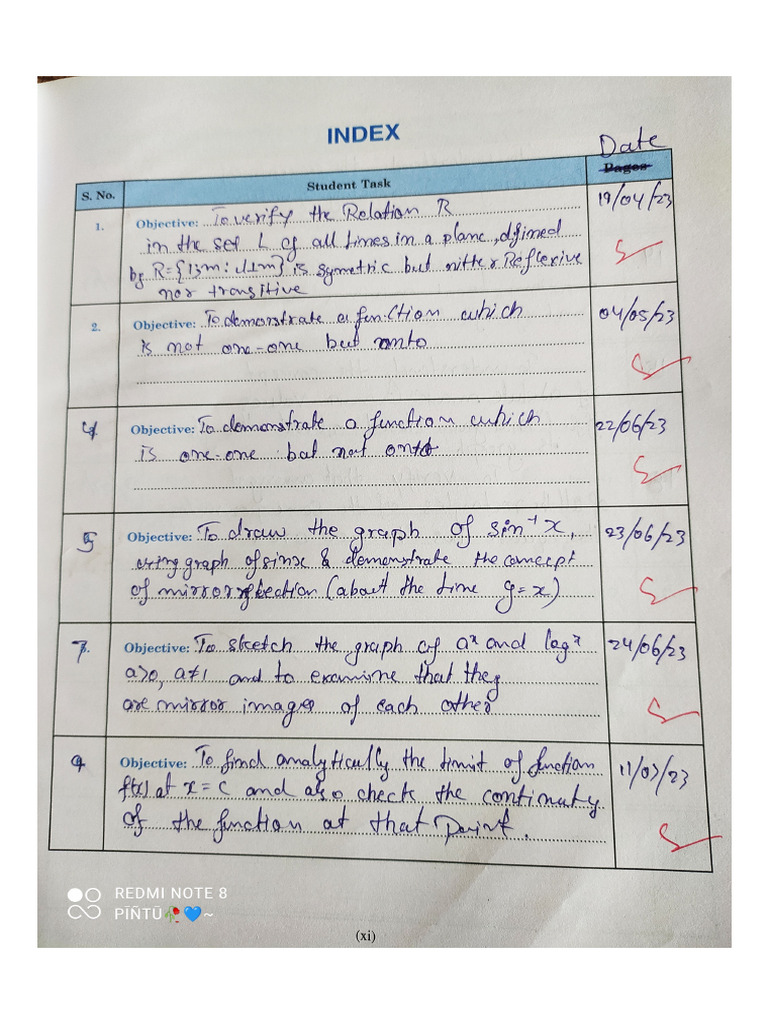 INDEX
Date
S. No. Student Task Pages
1. Objective: To verify the Relation R 19/04/23
in the set L of all lines in a plane, defined
by R={l,m: l⊥m} is symetric but nitter Reflexive
nor transitive
2. Objective: To demonstrate a function which 04/05/23
is not one-one but onto
4. Objective: To demonstrate a function which 22/06/23
is one-one but not onto
5 Objective: To draw the graph of sin⁻¹x, 23/06/23
using graph of sinx & demonstrate the concept
of mirror reflection (about the line y=x)
7. Objective: To sketch the graph of aˣ and logˣ 24/06/23
a>0, a≠1 and to examine that they
are mirror image of each other
9 Objective: To find analytically the limit of function 11/07/23
f(x) at x=c and also check the continuty
of the function at that point.
REDMI NOTE 8
PĪÑTŪ🥀💙~
(xi)